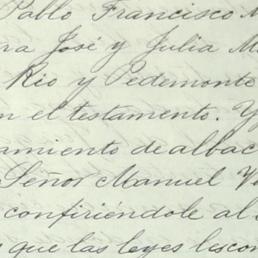 Pablo Francisco
José y Julia
Rio y Pedemonte
en el testamento.
amiento de albac
Señor Manuel
confiriéndole al
que las leyes